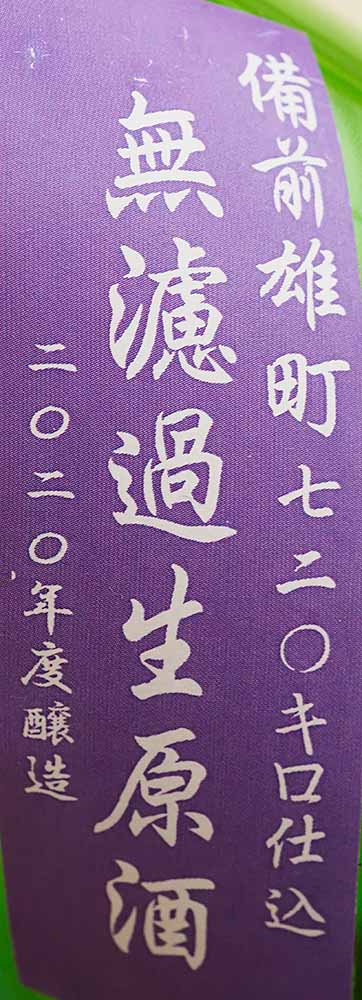 備前雄町七二〇キロ仕込
無濾過生原酒
二〇二〇年度醸造